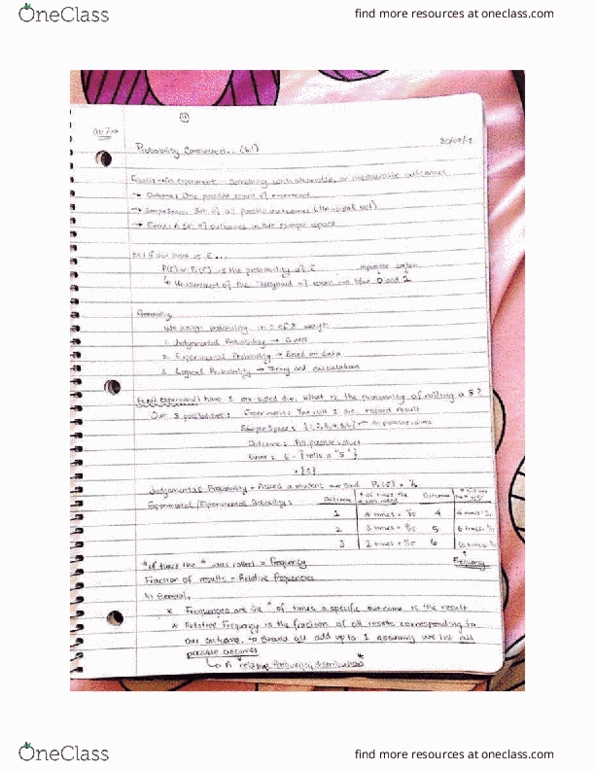 OneClass
find more resources at oneclass.com
Probability Continued... (6.1)
experiment: Something with observable, or measurable outcomes
→ Outcome: One possible result of experiment
→ Sample Space: Set of all possible outcomes (Universal set)
→ Event: A set of outcomes in the sample space
if our event is E...
P(E) or Pr(E) is the probability of E
↳ Measurement of the likelyhood of event 0 and 1
Generally
We assign probability in 1 of 3 ways:
1. Judgemental Probability → Guess
2. Experimental Probability → Based on data
3. Logical Probability → Theory and calculations
have 1 six sided die, What is the probability of rolling a 5?
Our 3 possibilities: Experiment: roll 1 die, record result
Sample Space: possible values
Outcome: values
Event: E = {rolls a "5"}
= {5}
Judgemental Probability - Asked a student Said Pr(E) = 1/6
Experimental Probability:
Outcome # of times the # was rolled Outcome
1 4 times = 4
2 3 times = 5
3 2 times = 6
Frequency
# of times the # was rolled = frequency
Fraction of results = Relative frequencies
In General,
× Frequencies are the # of times a specific outcome is the result
× Relative Frequency is the fraction of all results corresponding to
one outcome, should all add up to 1 assuming we list all
possible outcomes
↳ A "relative frequency distribution"
OneClass
find more resources at oneclass.com